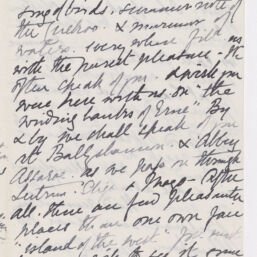 song of birds. summer note of
the Cuckoo. & murmur of
waters. every where fill us
with the purest pleasure - We
often speak of you. & wish you
were here with us on "the
winding banks of Erne" By
& by we shall speak of you
at Ballyshannon. & Abbey
Assaroe. as we pass on through
Leitrim. & - After
all. there are few pleasanter
places than our own fair
"island of the west" You must
see it some